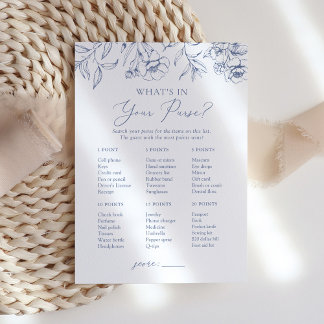 WHAT'S IN
Your Purse?
Search your purse for the items on this list.
The guest with the most points wins!
1 POINT
Cell phone
Keys
Credit card
Pen or pencil
Driver's License
Receipt
5 POINTS
Gum or mints
Hand sanitizer
Grocery list
Rubber band
Tweezers
Sunglasses
5 POINTS
Mascara
Eye drops
Mirror
Vitamin
Brush or comb
Dental floss
10 POINTS
Check book
Perfume
Nail polish
Tissues
Water bottle
Headphones
15 POINTS
Jewelry
Phone charger
Medicine
Umbrella
Pepper spray
Q-tips
20 POINTS
Passport
Book
Pocket knife
Sewing kit
$20 dollar bill
Food
score: